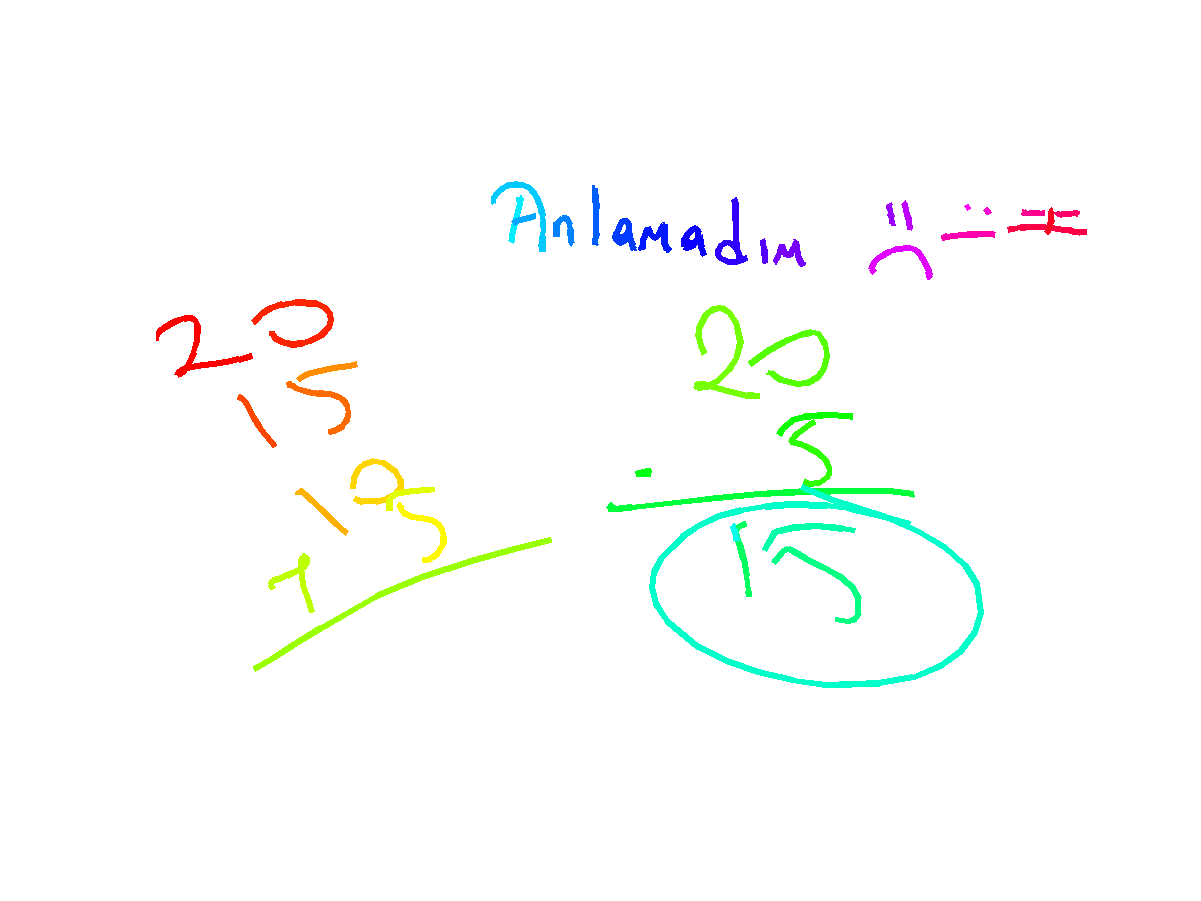 Anlamadım
20
15
20
5
15